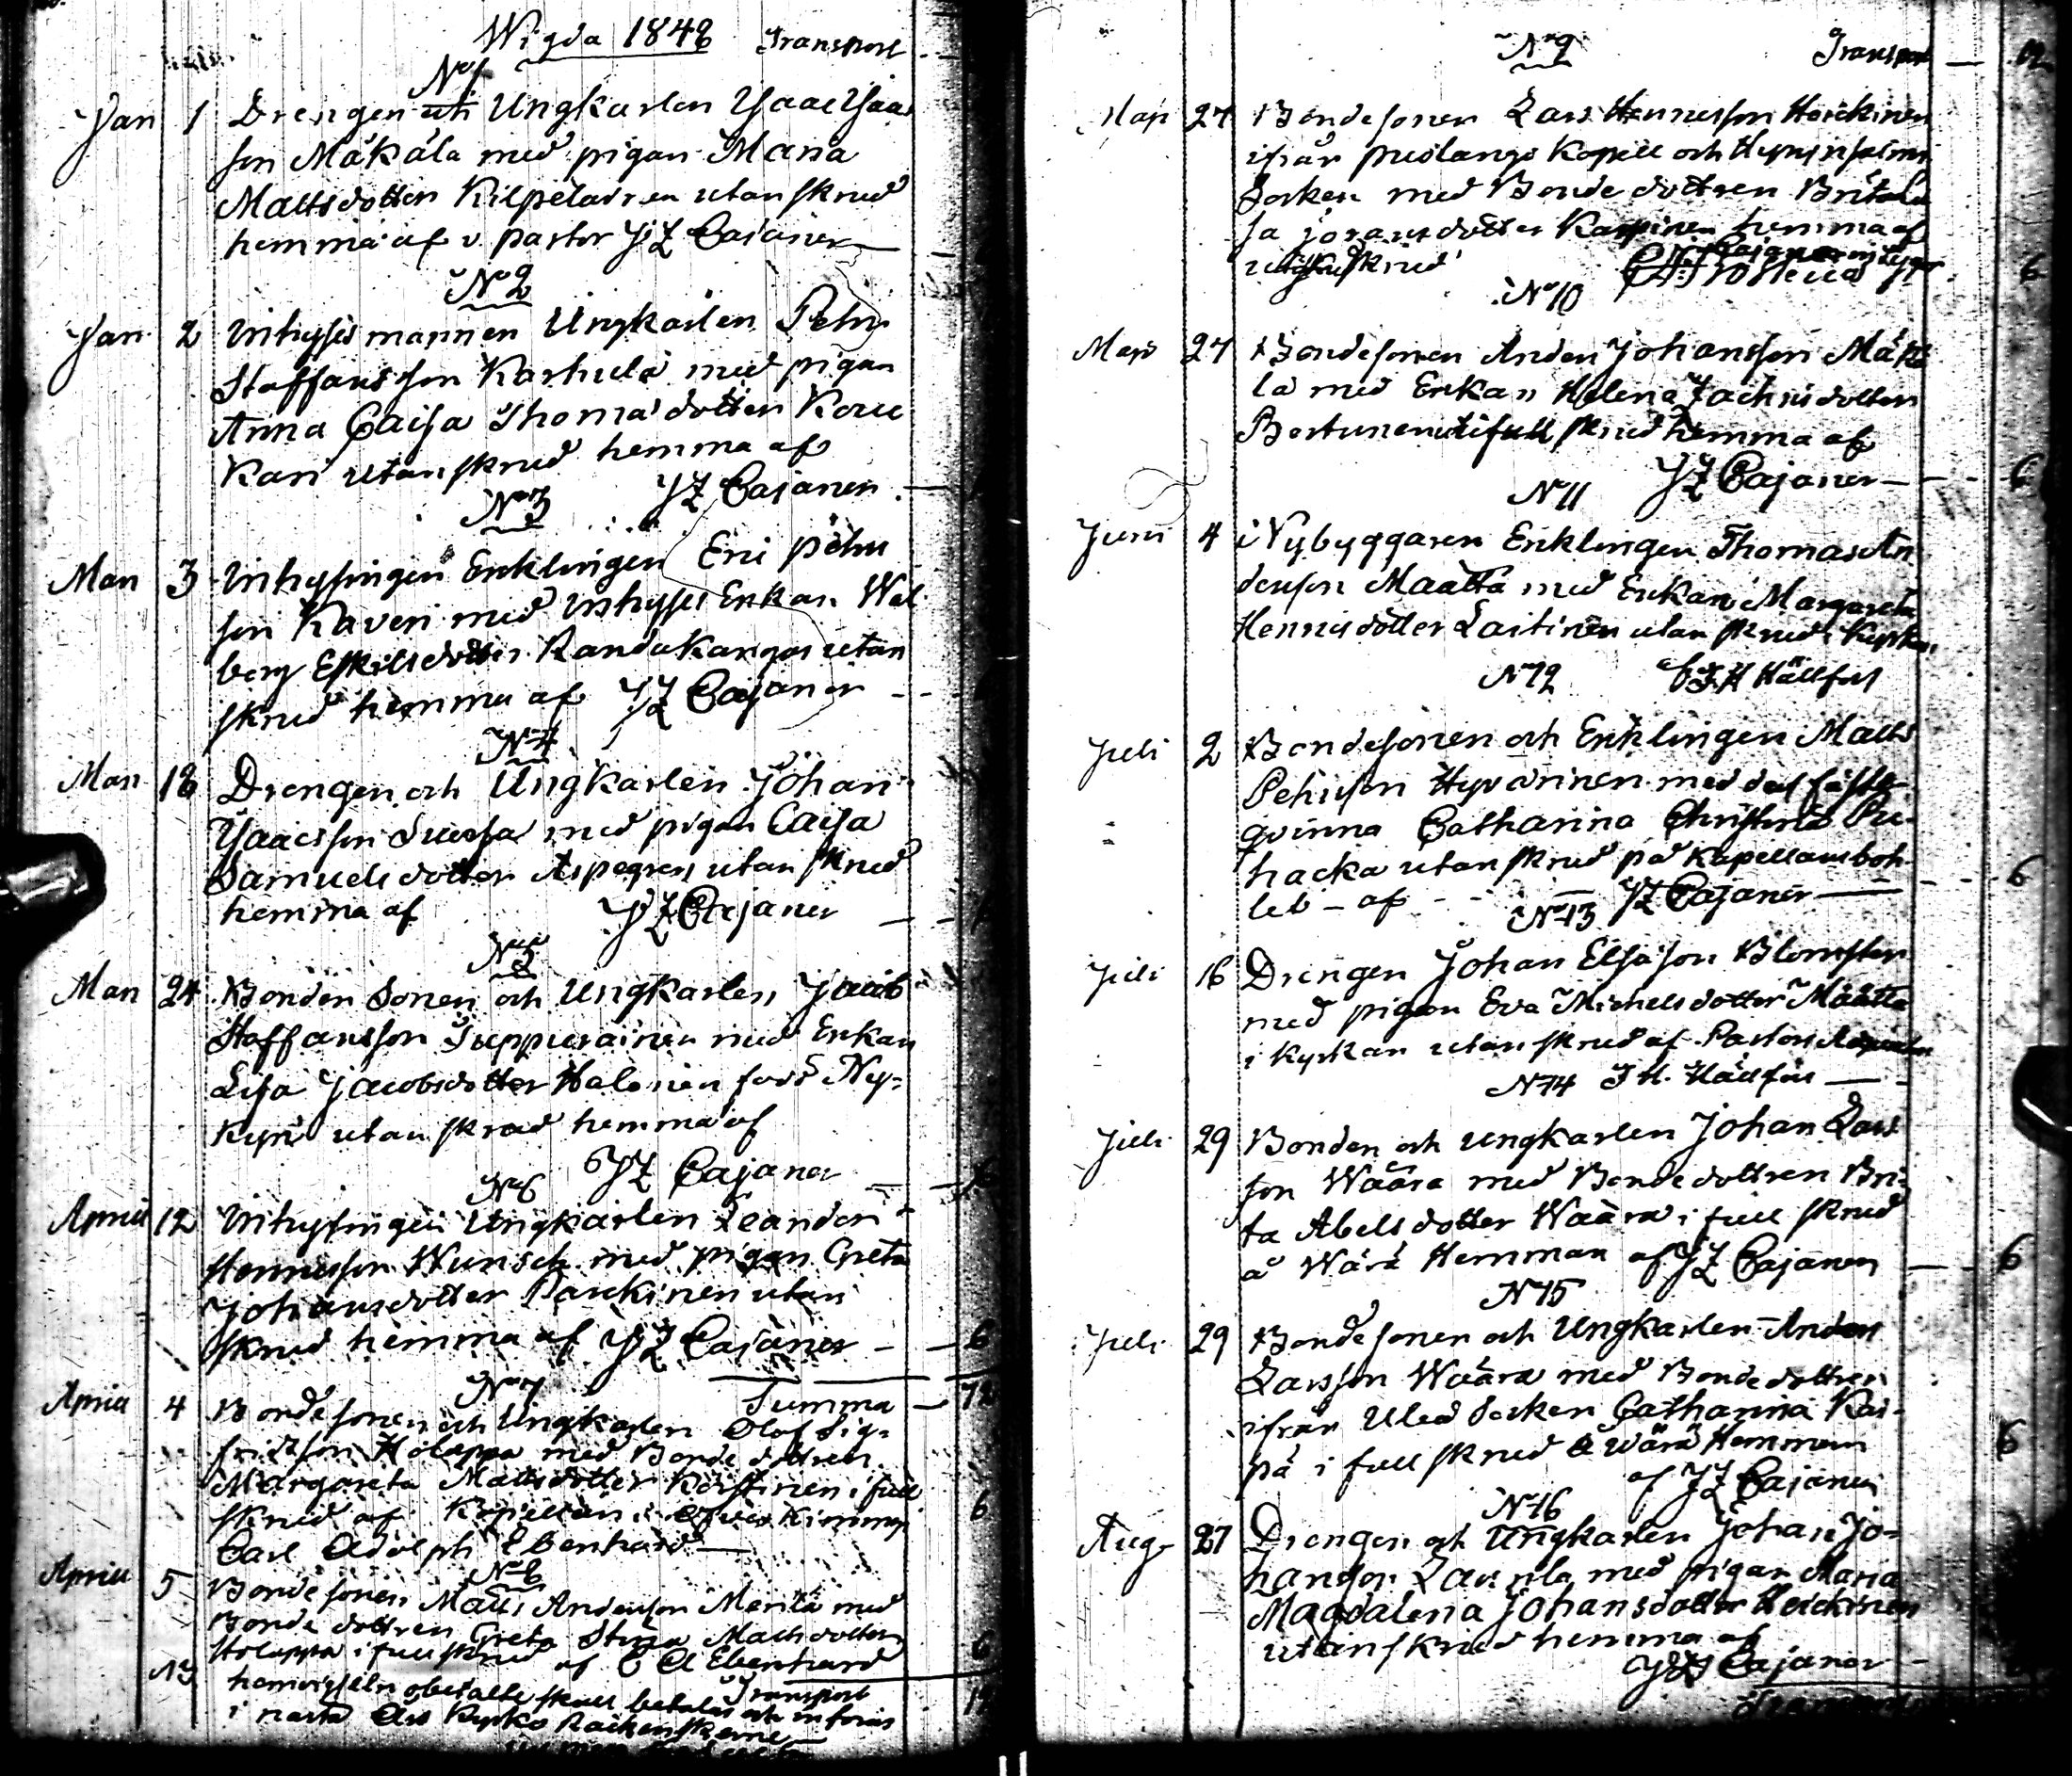 Wigda 1848 Transport
No 1
Jan 1 Drengen och Ungkarlen Isaac Isaac
son Mäkälä med pigan Maria
Mattsdotter Kilpeläinen utan skrud
hemma af v. pastor JZ Cajaner
No 2
Jan 2 Inhysesmannen Ungkarlen Petter
Staffansson Karhula med pigan
Anna Caisa Thomasdotter Kou
Kari utan skrud hemma af
JZ Cajaner
No 3
Mars 3 Inhysingen Enklingen Eric Pehr
son Kaveri med Inhyses Enkan Wal
borg Eskilsdotter Kandukangas utan
skrud hemma af JZ Cajaner
No 4
Mars 18 Drengen och Ungkarlen Johan
Isaacsson med pigan Caisa
Samuelsdotter Aspegren utan skrud
hemma af JZ Cajaner
No 5
Mars 24 Bonden Sonen och Ungkarlen Jacob
Staffansson Seppurainen med Enkan
Lisa Jacobsdotter Halonen född Ny-
kyri utan skrud hemma af
JZ Cajaner 6
No 6
April 12 Inhysingen Ungkarlen Leander
Hennicsson Wunsch med pigan Greta
Johansdotter Parckinen utan
skrud hemma af JZ Cajaner 6
No 7 Summa 12
April 4 Bondesonen och Ungkarlen Olof Sig-
fridsson Holappa med Bondedottren
Margareta Mattsdotter Korstinen i full
skrud af Kapellan i Kimmi 6
Carl Adolph Ebenhard
No 8
April 5 Bondesonen Matts Andersson Merilä med
Bondedottren Greta Stina Mathsdotter
Holappa i full skrud af C A Ebenhard 6
Transport
NB obetalte skall betalas och införas
i nästa Års Kyrko Räkenskaper
No 9 Transport 12
Maj 27 Bondesonen Lars Hennesson Heickinen
ifrån Kapell och Hyrynsalmi
Socken med Bondedottren Brita Cai
sa Joransdotter Karpinen hemma af
utan skrud 6
No 10
Maj 27 Bondesonen Anders Johansson Mäke
lä med Enkan Helena Zachrisdotter
Bertunen uti full skrud hemma af
JZ Cajaner 6
No 11
Juni 4 Nybyggaren Enklingen Thomas An
dersson Määttä med Enkan Margareta
Hennisdotter Laitinen utan skrud i Kyrkan
No 12 Hällfors
Juli 2 Bondesonen och Enklingen Matts
Pehrsson Hyvärinen med des fäste
qvinna Catharina Christina Pu
hacka utan skrud på Kapellansboh
let af JZ Cajaner 6
No 13
Juli 16 Drengen Johan Elsasson Blomster
med pigan Eva Michelsdotter Määttä
i Kyrkan utan skrud af Pastors Adjuncten
No 14 J H. Hällfors
Juli 29 Bonden och Ungkarlen Johan Lars
son Wäärä med Bondedottren Bri-
ta Abelsdotter Wäärä i full skrud
å Wärä Hemman af JZ Cajaner 6
No 15
Juli 29 Bondesonen och Ungkarlen Anders
Larsson Wäärä med Bondedottren
ifrån Uleå Socken Catharina Kar-
pä i full skrud å Wärä Hemman 6
af JZ Cajaner
No 16
Aug 27 Drengen och Ungkarlen Johan Jo-
hansson med pigan Maria
Magdalena Johansdotter Heickinen
utan skrud hemma af
JZ Cajaner